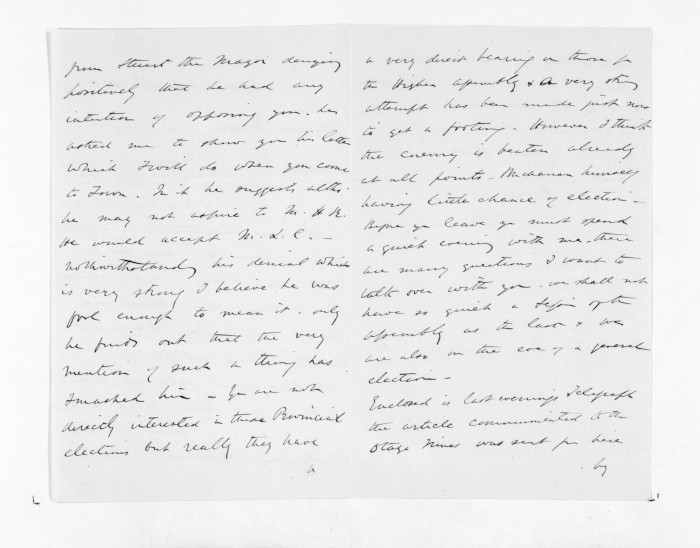 from Stuart the Mayor denying
positively that he had any
intention of opposing you. he
asked me to show you his letter
which I will do when you come
to Town. In it he suggests altho.
he may not aspire to M. H. R.
He would accept M. L. C. —
notwithstanding his denial which
is very strong I believe he was
fool enough to mean it. only
he finds out that the very
mention of such a thing has
smashed him — Ye are not
directly interested in these Provincial
elections but really they have
a
a very direct bearing on those for
the Higher assembly & a very strong
attempt has been made just now
to get a footing. However I think
the enemy is beaten already
at all points — Buchanan himself
having little chance of election —
ye leave ye must spend
a quiet evening with me. there
are many questions I want to
talk over with you. we shall not
have so quiet a Session of the
Assembly as the last & we
are also on the eve of a general
election —
Enclosed is last evenings Telegraph
the article communicated to the
Otago Times was sent from here
by